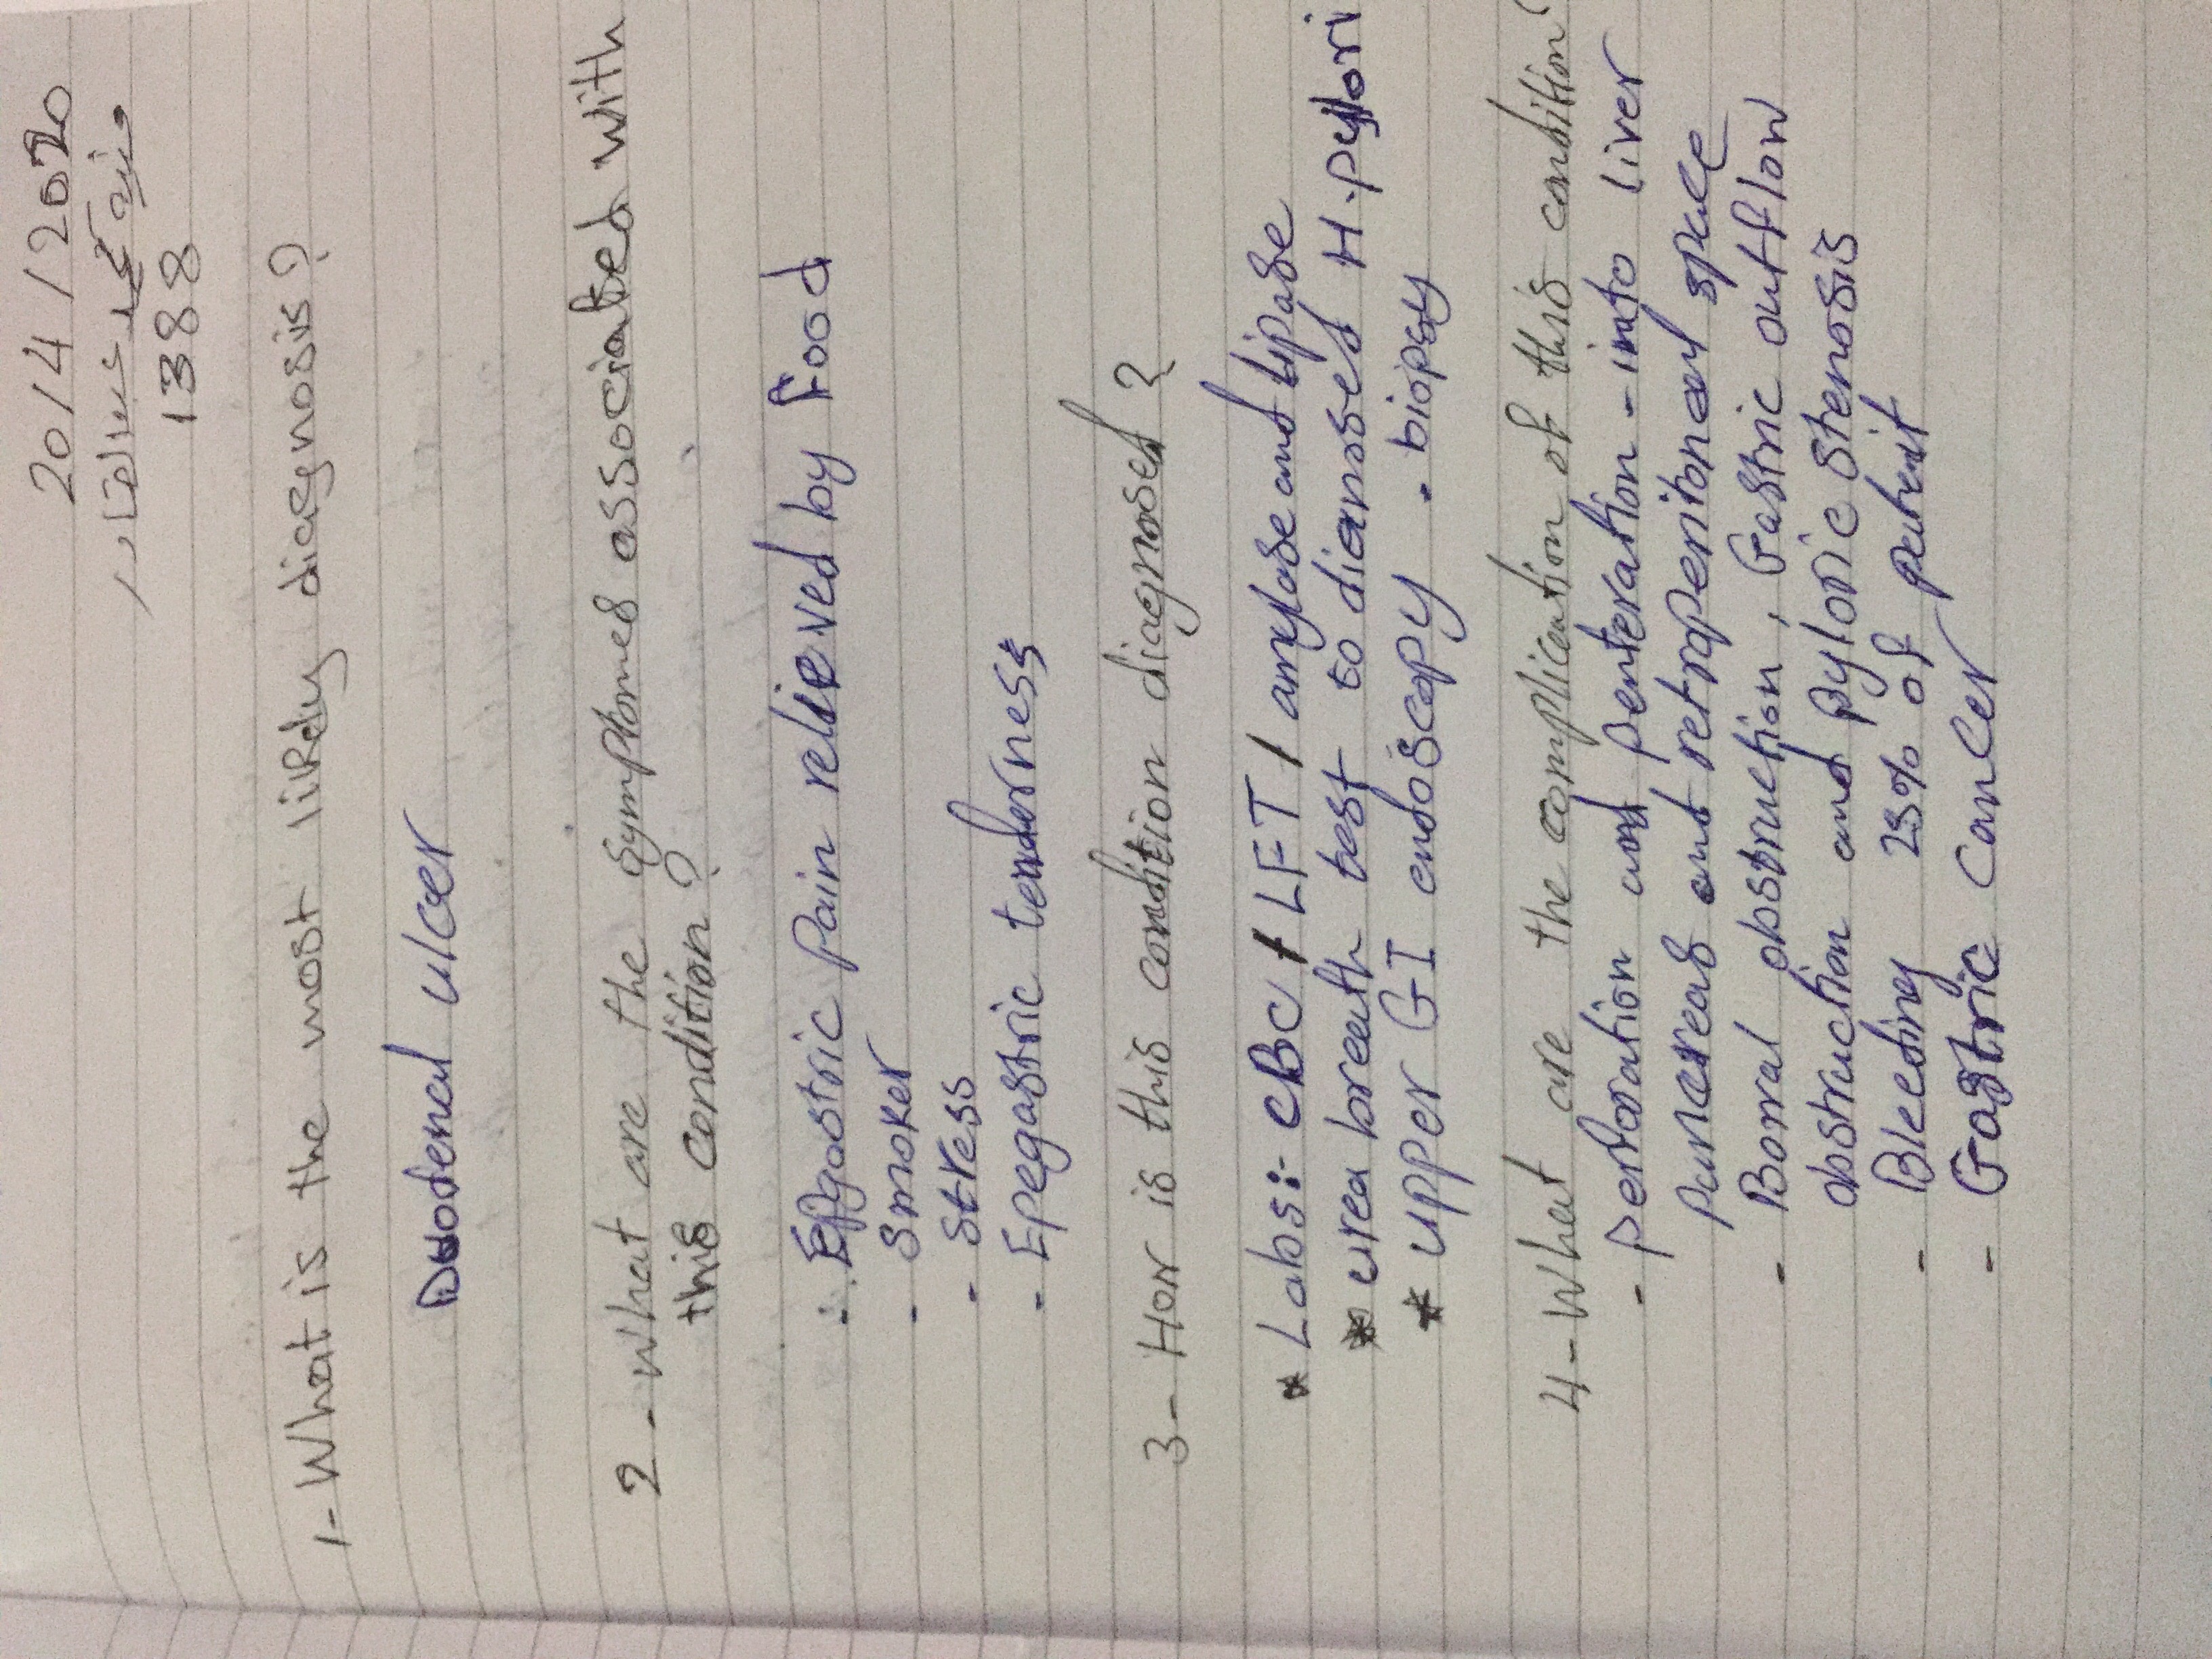 20/4/2020
1388
1- What is the most likely diagnosis?
Duodenal ulcer
2 - what are the symptomes associated with
this condition?
- Epgastric Pain relieved by Food
- smoker
- stress
- Epegastric tenderness
3- How is this condition diagnosed?
* Labs:- CBC / LFT / amylase and lipase
* urea breath test to dianosed H.pylori
* upper GI endoscopy - biopsy
4- What are the complication of this condition?
- perforation and penteration - into liver
pancreas and retroperitoneal space
- Bowal obstruction, Gastric outflow
obstruction and pyloric stenosis
- Bleeding 25% of patient
- Gastric cancer